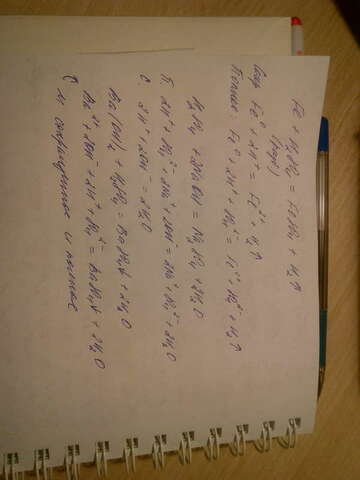 Fe + H₂SO₄ = FeSO₄ + H₂↑
(разб)
Сокр Fe⁰ + 2H⁺ = Fe²⁺ + H₂↑
Полное: Fe⁰ + 2H⁺ + SO₄²⁻ = Fe²⁺ + SO₄²⁻ + H₂↑
H₂SO₄ + 2NaOH = Na₂SO₄ + 2H₂O
П. 2H⁺ + SO₄²⁻ + 2Na⁺ + 2OH⁻ = 2Na⁺ + SO₄²⁻ + 2H₂O
С. 2H⁺ + 2OH⁻ = 2H₂O
Ba(OH)₂ + H₂SO₄ = BaSO₄↓ + 2H₂O
Ba²⁺ + 2OH⁻ + 2H⁺ + SO₄²⁻ = BaSO₄↓ + 2H₂O
и сокращенное и полное